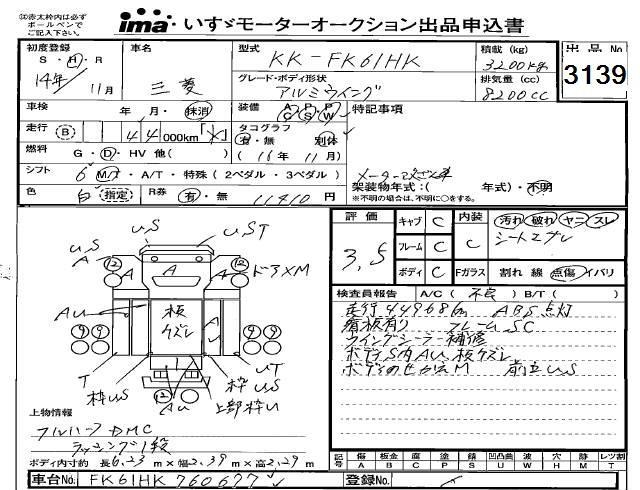 ※赤太枠内は必ず
ボールペンで
ご記入下さい。
ima いすゞモーターオークション出品申込書
初度登録 車名 型式 KK-FK61HK 積載 (kg) 3200kg 出品No
S・H・R 14年 11月 三菱 グレード・ボディ形状 アルミウイング 排気量 (cc) 8200cc 3139
車検 年・月・抹消 装備 A C P S P W 特記事項
走行 (B) 44000km 「メ」 タコグラフ 有・無 別体
燃料 G・D・HV 他( ) (16年 11月)
シフト 6 MT・A/T・特殊(2ペダル・3ペダル) 架装物年式:( 年式)・不明
色 白 指定 R券 有・無 11410円 ※不明の場合は、不明に○をする。
評価 3.5 キャブ C 内装 C 汚れ 破れ ヤニ スレ
フレーム C シートスレ
ボディ C Fガラス 割れ 線 点傷 イバリ
検査員報告 A/C ( 不良 ) B/T ( )
走行449686km ABS点灯
看板有り フレームSC
ウイングシーラー補修
ボディS内AU、板ケズレ
U,S U,ST
A 12 A 12 ドアXM
A
AU 板ケズレ A
9 9 9 9
T 枠US 枠US UT
12 AU 上部枠U
上物情報
フルハーフ DMC
ラッシング1段
ボディ内寸約 長6.23m×幅2.39m×高2.29m
記号 傷 板金 腐 塗 錆 凹凸曲 波 穴 跡 レツ割
A B C P S U W H M T
車台No. FK61HK760677 登録No.